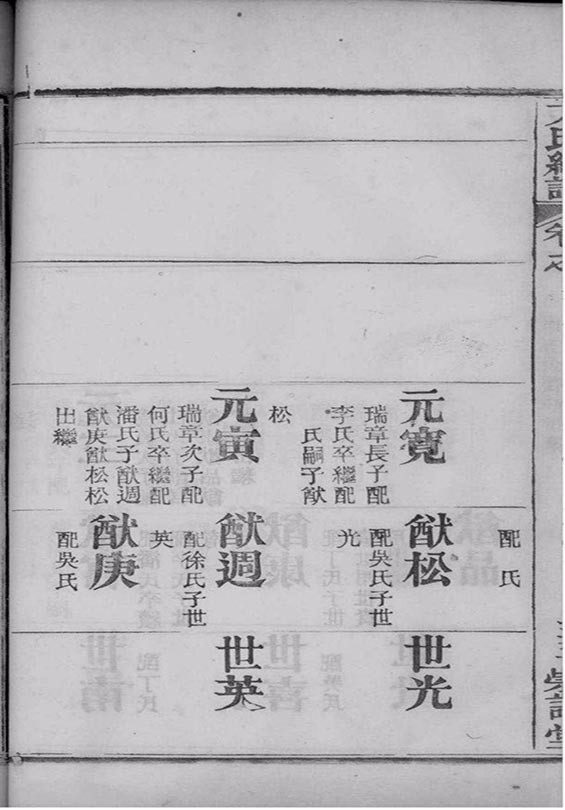 元寬
瑞章長子配
李氏卒繼配
氏嗣子猷
松
元寅
瑞章次子配
何氏卒繼配
潘氏子猷週
猷庚猷松松
出繼
配氏
猷松
配吳氏子世
光
猷週
配徐氏子世
英
猷庚
配吳氏
世光
世英